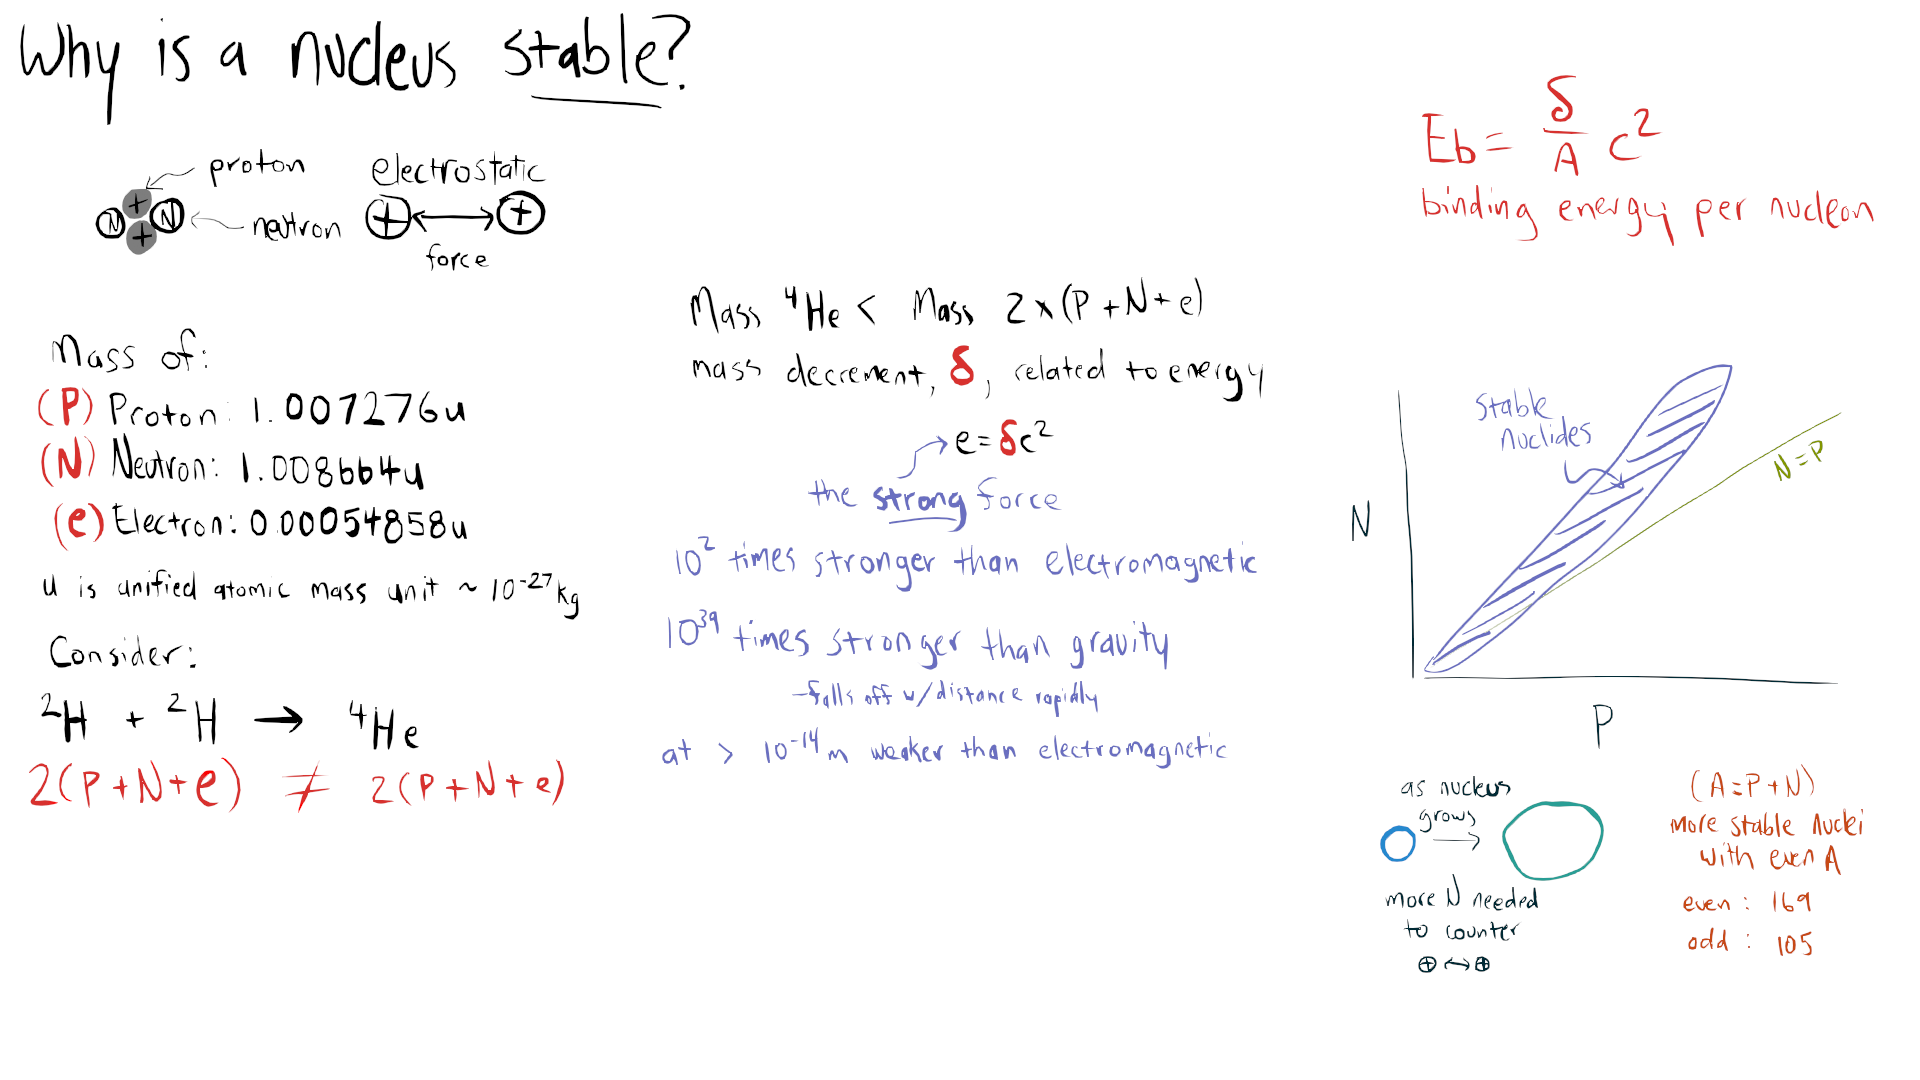 Why is a nucleus stable?
proton
N + N +
neutron
electrostatic
+ +
force
Mass of:
(P) Proton: 1.007276u
(N) Neutron: 1.008664u
(e) Electron: 0.00054858u
u is unified atomic mass unit ~ 10⁻²⁷kg
Consider:
²H + ²H → ⁴He
2(P+N+e) ≠ 2(P+N+e)
Mass ⁴He < Mass 2x(P+N+e)
mass decrement, δ, related to energy
e=δc²
the strong force
10² times stronger than electromagnetic
10³⁹ times stronger than gravity
-falls off w/distance rapidly
at > 10⁻¹⁴m weaker than electromagnetic
Eb= δ/A c²
binding energy per nucleon
Stable
nuclides
N=P
N
P
as nucleus
grows
more N needed
to counter
+ ↔ +
(A=P+N)
more stable nuclei
with even A
even: 169
odd: 105